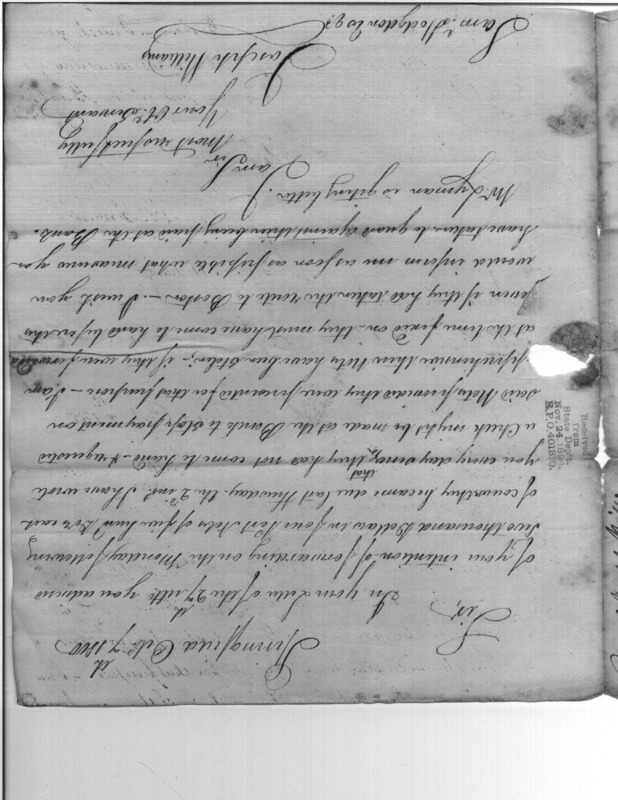 Springfield Octr 7th 1800
Sir,
In your Letter of the 27th ulto you advised
of your intention of forwarding on the Monday following
two thousand Dollars in four Post Notes of five hund Drs each
of course they became due last thursday the 2d inst. I have wrote
you every day since, that they had not come to hand & requested
a Check might be made at the Bank to stop payment on
said Notes, provided they were presented for that purpose - I am
apprehensive these Notes have been Stolen; if they were forwarded
at the time fixed on - they must have come to hand before this
even if they had taken the route to Boston - I wish you
would inform me as soon as possible what measures you
have taken to guard against their being paid at the Bank.
Mr Lyman is geting better.
I am Sir
Most respectfully
Your Ob. Servant
Joseph Williams
Sam. Hodgdon Esqr.
Received
from
State Dept.
Nov. 24, 18
R.P.O. 401870.